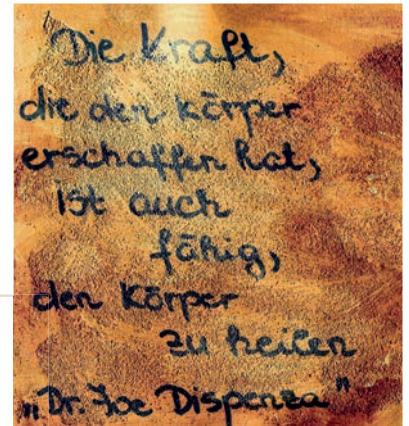 Die Kraft,
die den Körper
erschaffen hat,
ist auch
fähig,
den Körper
zu heilen
"Dr. Joe Dispenza"